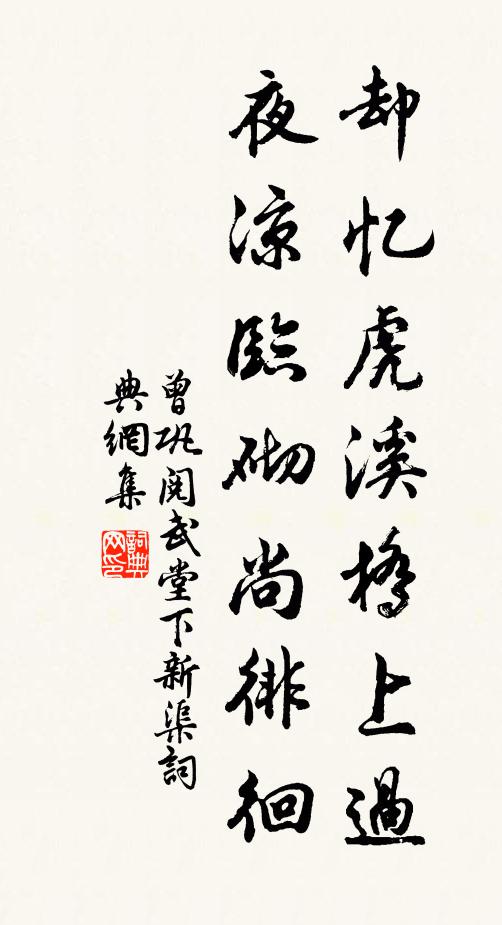 却忆虎溪橋上過
夜凉臨砌尚徘徊
曾巩阅武堂下新渠詞
典網集
詞典网印